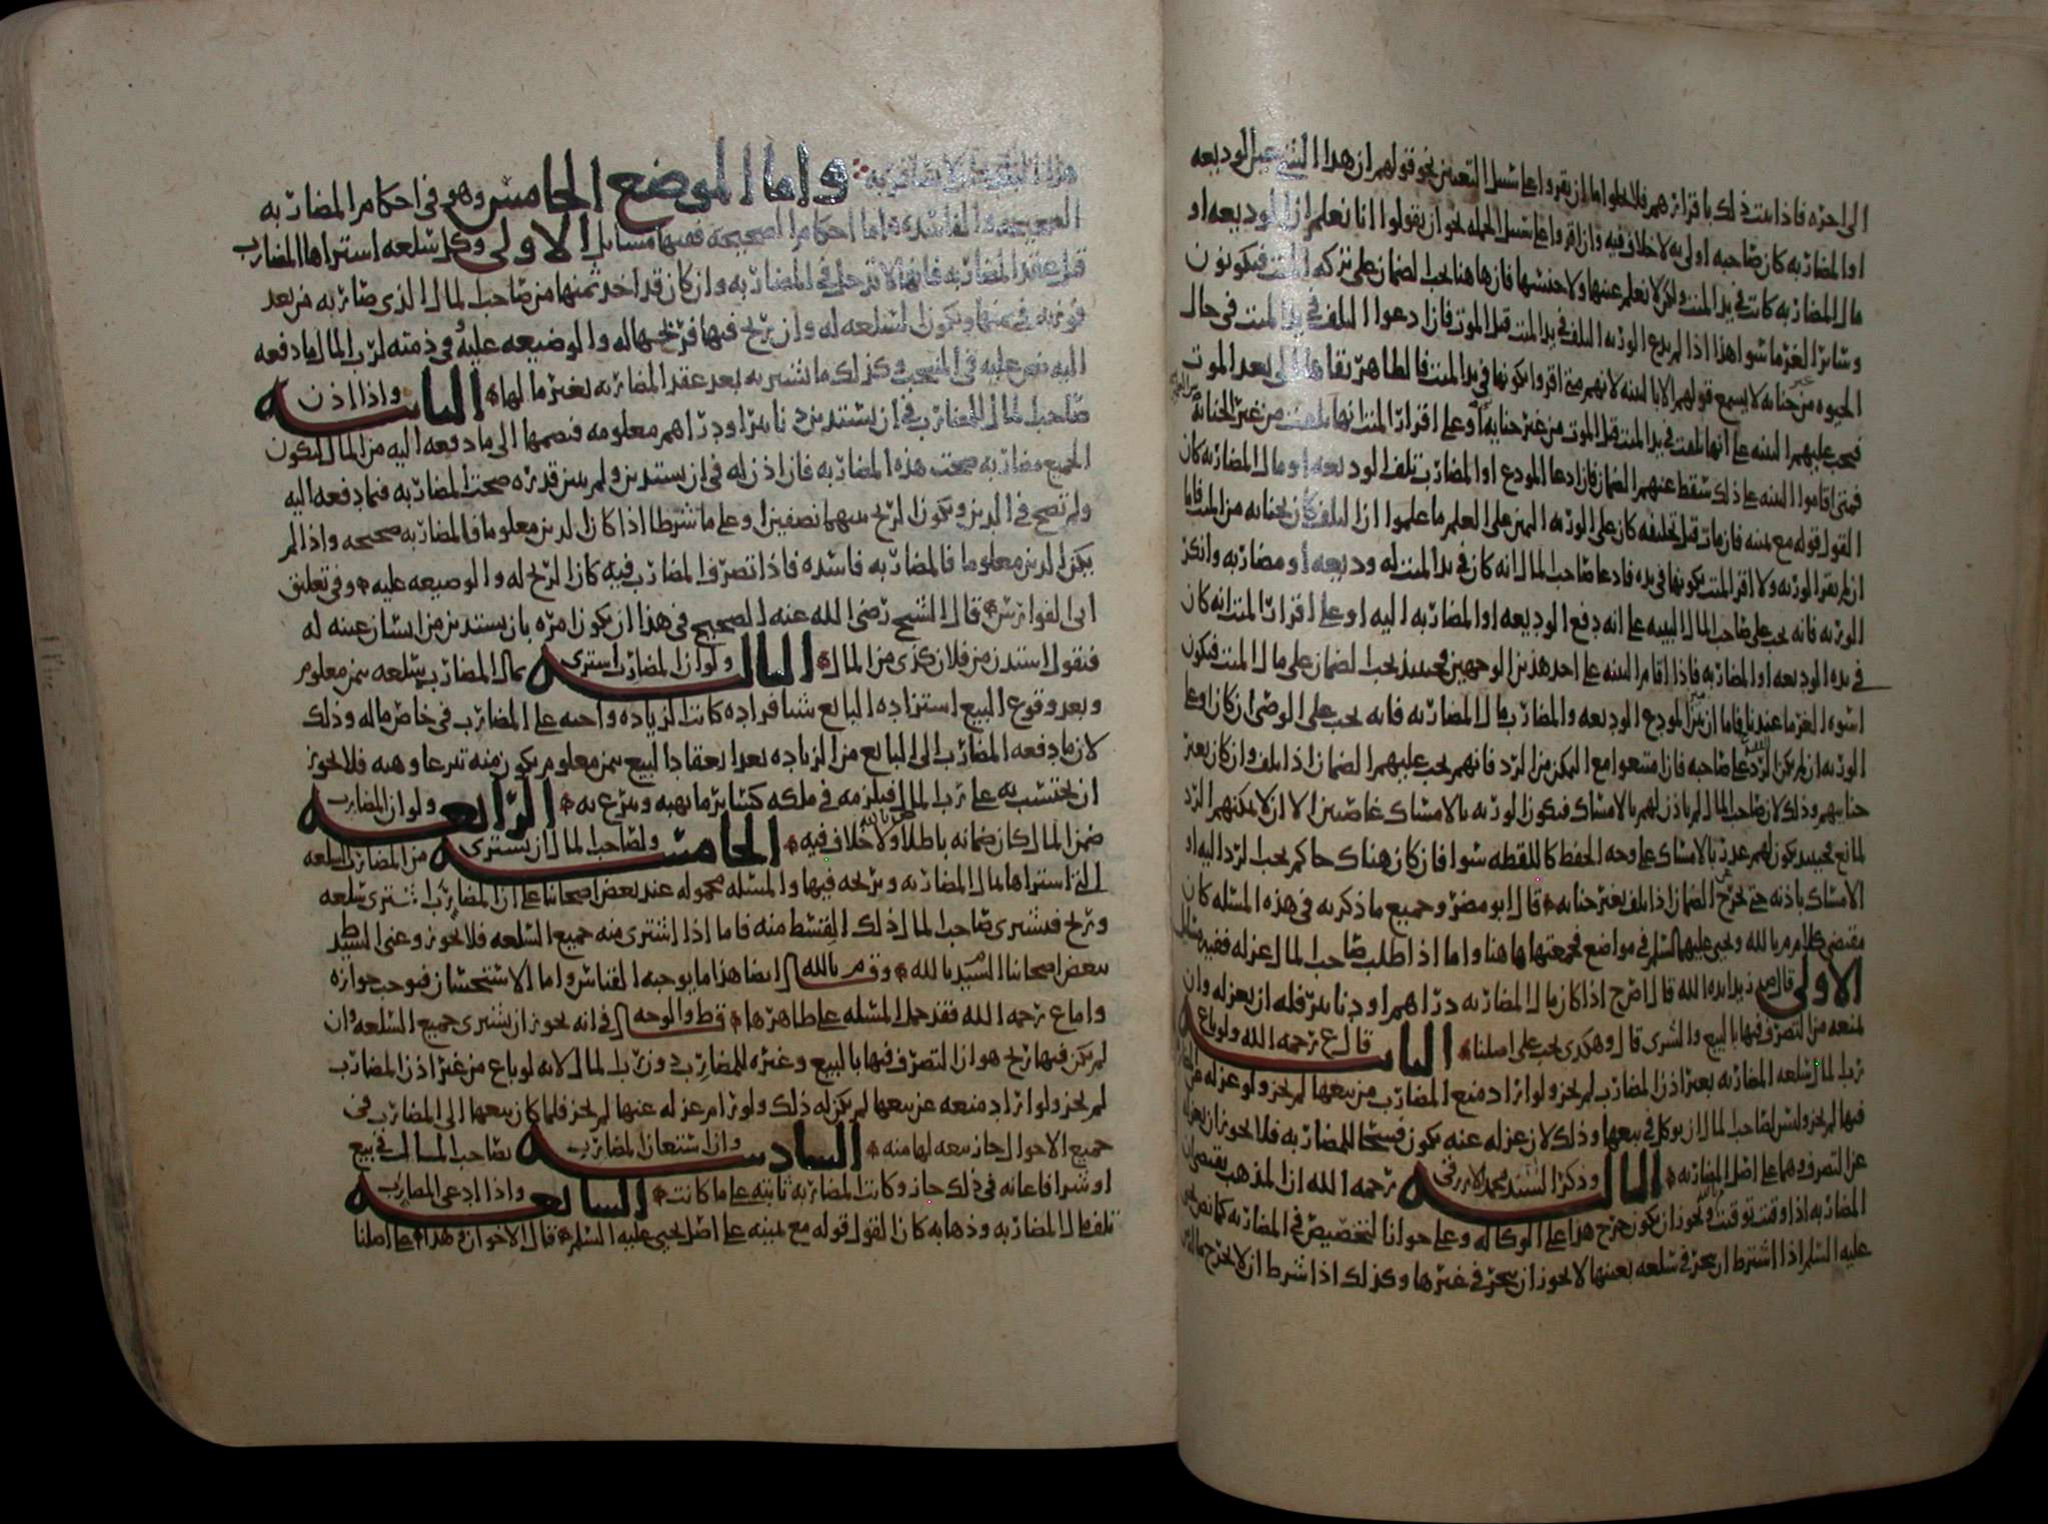 الى اخره فاذا ثبت ذلك باقرارهم فلا يخلوا اما ان يقروا على سبيل التعيين نحو قولهم ان هذا الشي عين الوديعه
او المضاربه كان صاحبه اولى به لا خلاف فيه وان اقروا على سبيل الجمله نحو ان يقولوا انا نعلم ان الوديعه او
مال المضاربه كانت في يد الميت ولكن لا نعلم عينها ولا جنسها فان هاهنا يجب الضمان على تركه الميت فيكونون
وسائر الغرما سوا هذا اذا لم يدع الورثه التلف في يد الميت قبل الموت فان ادعوا التلف في يد الميت في حال
الحيوه من غير جنايه لا يسمع قولهم الا بالبينه لانهم متى اقروا بكونها في يد الميت فالظاهر بقاها الى بعد الموت
فيجب عليهم البينه على انها تلفت في يد الميت قبل الموت من غير جنايه او على اقرار الميت انها تلفت من غير الجنايه
فمتى اقاموا البينه على ذلك سقط عنهم الضمان فان ادعا المودع او المضارب تلف الوديعه او مال المضاربه كان
القول قوله مع يمينه فان مات قبل تحليفه كان على الورثه اليمين على العلم ما علموا ان التلف كان بجنايه من الميت فاما
ان لم يقر الورثه ولا اقر الميت بكونها في يده فادعا صاحب المال انه كان في يد الميت له وديعه او مضاربه وانكر
الورثه فانه يجب على صاحب المال البينه على انه دفع الوديعه او المضاربه اليه او على اقرار الميت انه كان
في يده الوديعه او المضاربه فاذا اقام البينه على احد هذين الوجهين فحينئذ يجب الضمان على مال الميت فيكون
اسوه الغرما عندنا فاما ان عين المودع الوديعه والمضارب مال المضاربه فانه يجب على الوصي ان كان وعلى
الورثه ان لم يكن الرد على صاحبه فان امتنعوا مع التمكن من الرد فانهم يجب عليهم الضمان اذا تلف وان كان بغير
جنايتهم وذلك لان صاحب المال لم ياذن لهم بالامساك فيكون الورثه بالامساك غاصبين الا ان لا يمكنهم الرد
لمانع فحينئذ يكون لهم عذر بالامساك على وجه الحفظ كاللقطه سوا فان كان هناك حاكم يجب الرد اليه او
الامساك باذنه حتى يخرج عن الضمان اذا تلف بغير جنايه قال ابو مضر وجميع ما ذكرته في هذه المسله كان
مقتضى كلام م بالله ويحيى عليهما السلم في مواضع فجمعتها هاهنا واما اذا طلب صاحب المال عزله ففيه مسايل
الاولى قال زيد ايده الله قال ص ح اذا كان مال المضاربه دراهم او دنانير فله ان يعزله وان
يمنعه من التصرف فيها بالبيع والشرى قال وهكذى يجب على اصلنا الثانيه قال ع رحمه الله ولو باع
رب المال سلعه المضاربه بغير اذن المضارب لم يجز ولو اراد منع المضارب من بيعها لم يجز ولو عزله
فيها لم يجز وليس لصاحب المال ان يوكل في بيعها وذلك لان عزله عنه يكون فسخا للمضاربه فلا يجوز ان يعزله
عن التصرف وهما على اصل المضاربه الثالثه وذكر السيد محمد الازرقي رحمه الله ان المذهب يقتضي ان
المضاربه اذا وقت توقتت ويجوز ان يكون خرج هذا على الوكاله وعلى جواز التخصيص في المضاربه كما نص يحيى
عليه السلم اذا اشترط ان يتجر في سلعه بعينها لا يجوز ان يتجر في غيرها وكذلك اذا شرط ان لا يخرج
واما الموضع الخامس وهو في احكام المضاربه
الصحيحه والفاسده اما احكام الصحيحه ففيها مسايل الاولى وكل سلعه استراها المضارب
قبل عقد المضاربه فانها لا تدخل في المضاربه وان كان قد اخذ ثمنها من صاحب المال الذي ضاربه من بعد
فوزنه في ثمنها ويكون السلعه له وان ربح فيها فربحها له والوضيعه عليه وفي ذمته لرب المال ما دفعه
اليه نص عليه في المنتخب وكذلك ما تشتريه بعد عقد المضاربه بغير مالها الثانيه واذا اذن
صاحب المال للمضارب في ان يستدين دنانير او دراهم معلومه فيضمها الى ما دفعه اليه من المال ليكون
الجميع مضاربه صحت هذه المضاربه فان اذن له في ان يستدين ولم يبين قدره صحت المضاربه فيما دفعه اليه
ولم تصح في الدين ويكون الربح بينهما نصفين او على ما شرطا اذا كان الدين معلوما فالمضاربه صحيحه واذا لم
يكن الدين معلوما فالمضاربه فاسده فاذا تصرف المضارب فيه كان الربح له والوضيعه عليه وفي تعليق
ابي الفوارس قال الشيخ رضي الله عنه الصحيح في هذا ان يكون امره بان يستدين من انسان عينه له
فيقول استدن من فلان كذى من المال الثالثه ولو ان المضارب استرى بمال المضارب سلعه بثمن معلوم
وبعد وقوع البيع استزاده البايع شيا فزاده كانت الزياده واجبه على المضارب في خاص ماله وذلك
لان ما دفعه المضارب الى البايع من الزياده بعد انعقاد البيع بثمن معلوم يكون منه تبرعا وهبه فلا يجوز
ان يحتسب به على رب المال فيلزمه في ملكه كسائر ما يهبه ويتبرع به الرابعه ولو ان المضارب
ضمن المال كان ضمانه باطلا ولا خلاف فيه الخامسه ولصاحب المال ان يسترى من المضارب السلعه
التي استراها بمال المضاربه ويربحه فيها والمسله محموله عند بعض اصحابنا على ان المضارب اشترى سلعه
وربح فيشترى صاحب المال ذلك القسط منه فاما اذا اشترى منه جميع السلعه فلا يجوز وعنى السيد ط
ببعض اصحابنا السيد م بالله وق م بالله ايضا هذا ما يوجبه القياس واما الاستحسان فيوجب جوازه
واما ع رحمه الله فقد حمل المسله على ظاهرها ق ط والوجه في انه يجوز ان يشترى جميع السلعه وان
لم يكن فيها ربح هو ان التصرف فيها بالبيع وغيره للمضارب دون رب المال لانه لو باع من غير اذن المضارب
لم يجز ولو اراد منعه عن بيعها لم يكن له ذلك ولو رام عزله عنها لم يجز فلما كان بيعها الى المضارب في
جميع الاحوال جاز بيعه لها منه السادسه وان استعان المضارب بصاحب المال في بيع
او شرا فاعانه في ذلك جاز وكانت المضاربه ثابته على ما كانت السابعه واذا ادعى المضارب
تلف مال المضاربه وذهابه كان القول قوله مع يمينه على اصل يحيى عليه السلم قال الاخوان وهذا على اصلنا